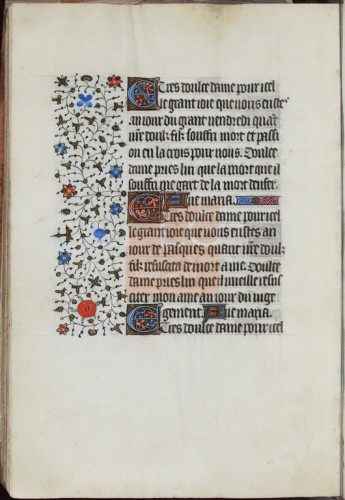 Tres doulce dame pour icel
le grant ioie que uous eustes
au iour du grant uendredi quant
uostre doulz filz souffri mort et passi
on en la crois pour nous. Doulce
dame pries lui que la mort que il
souffri me gart de la mort denfer.
Aue maria.
Tres doulce dame pour icel
le grant ioie que uous eustes au
iour de pasques quant uostre doulz
filz resuscita de mort a uie. Doulce
dame pries lui que il me uueille resus
citer mon ame au iour du iuge
gement. Aue maria.
Tres doulce dame pour icel